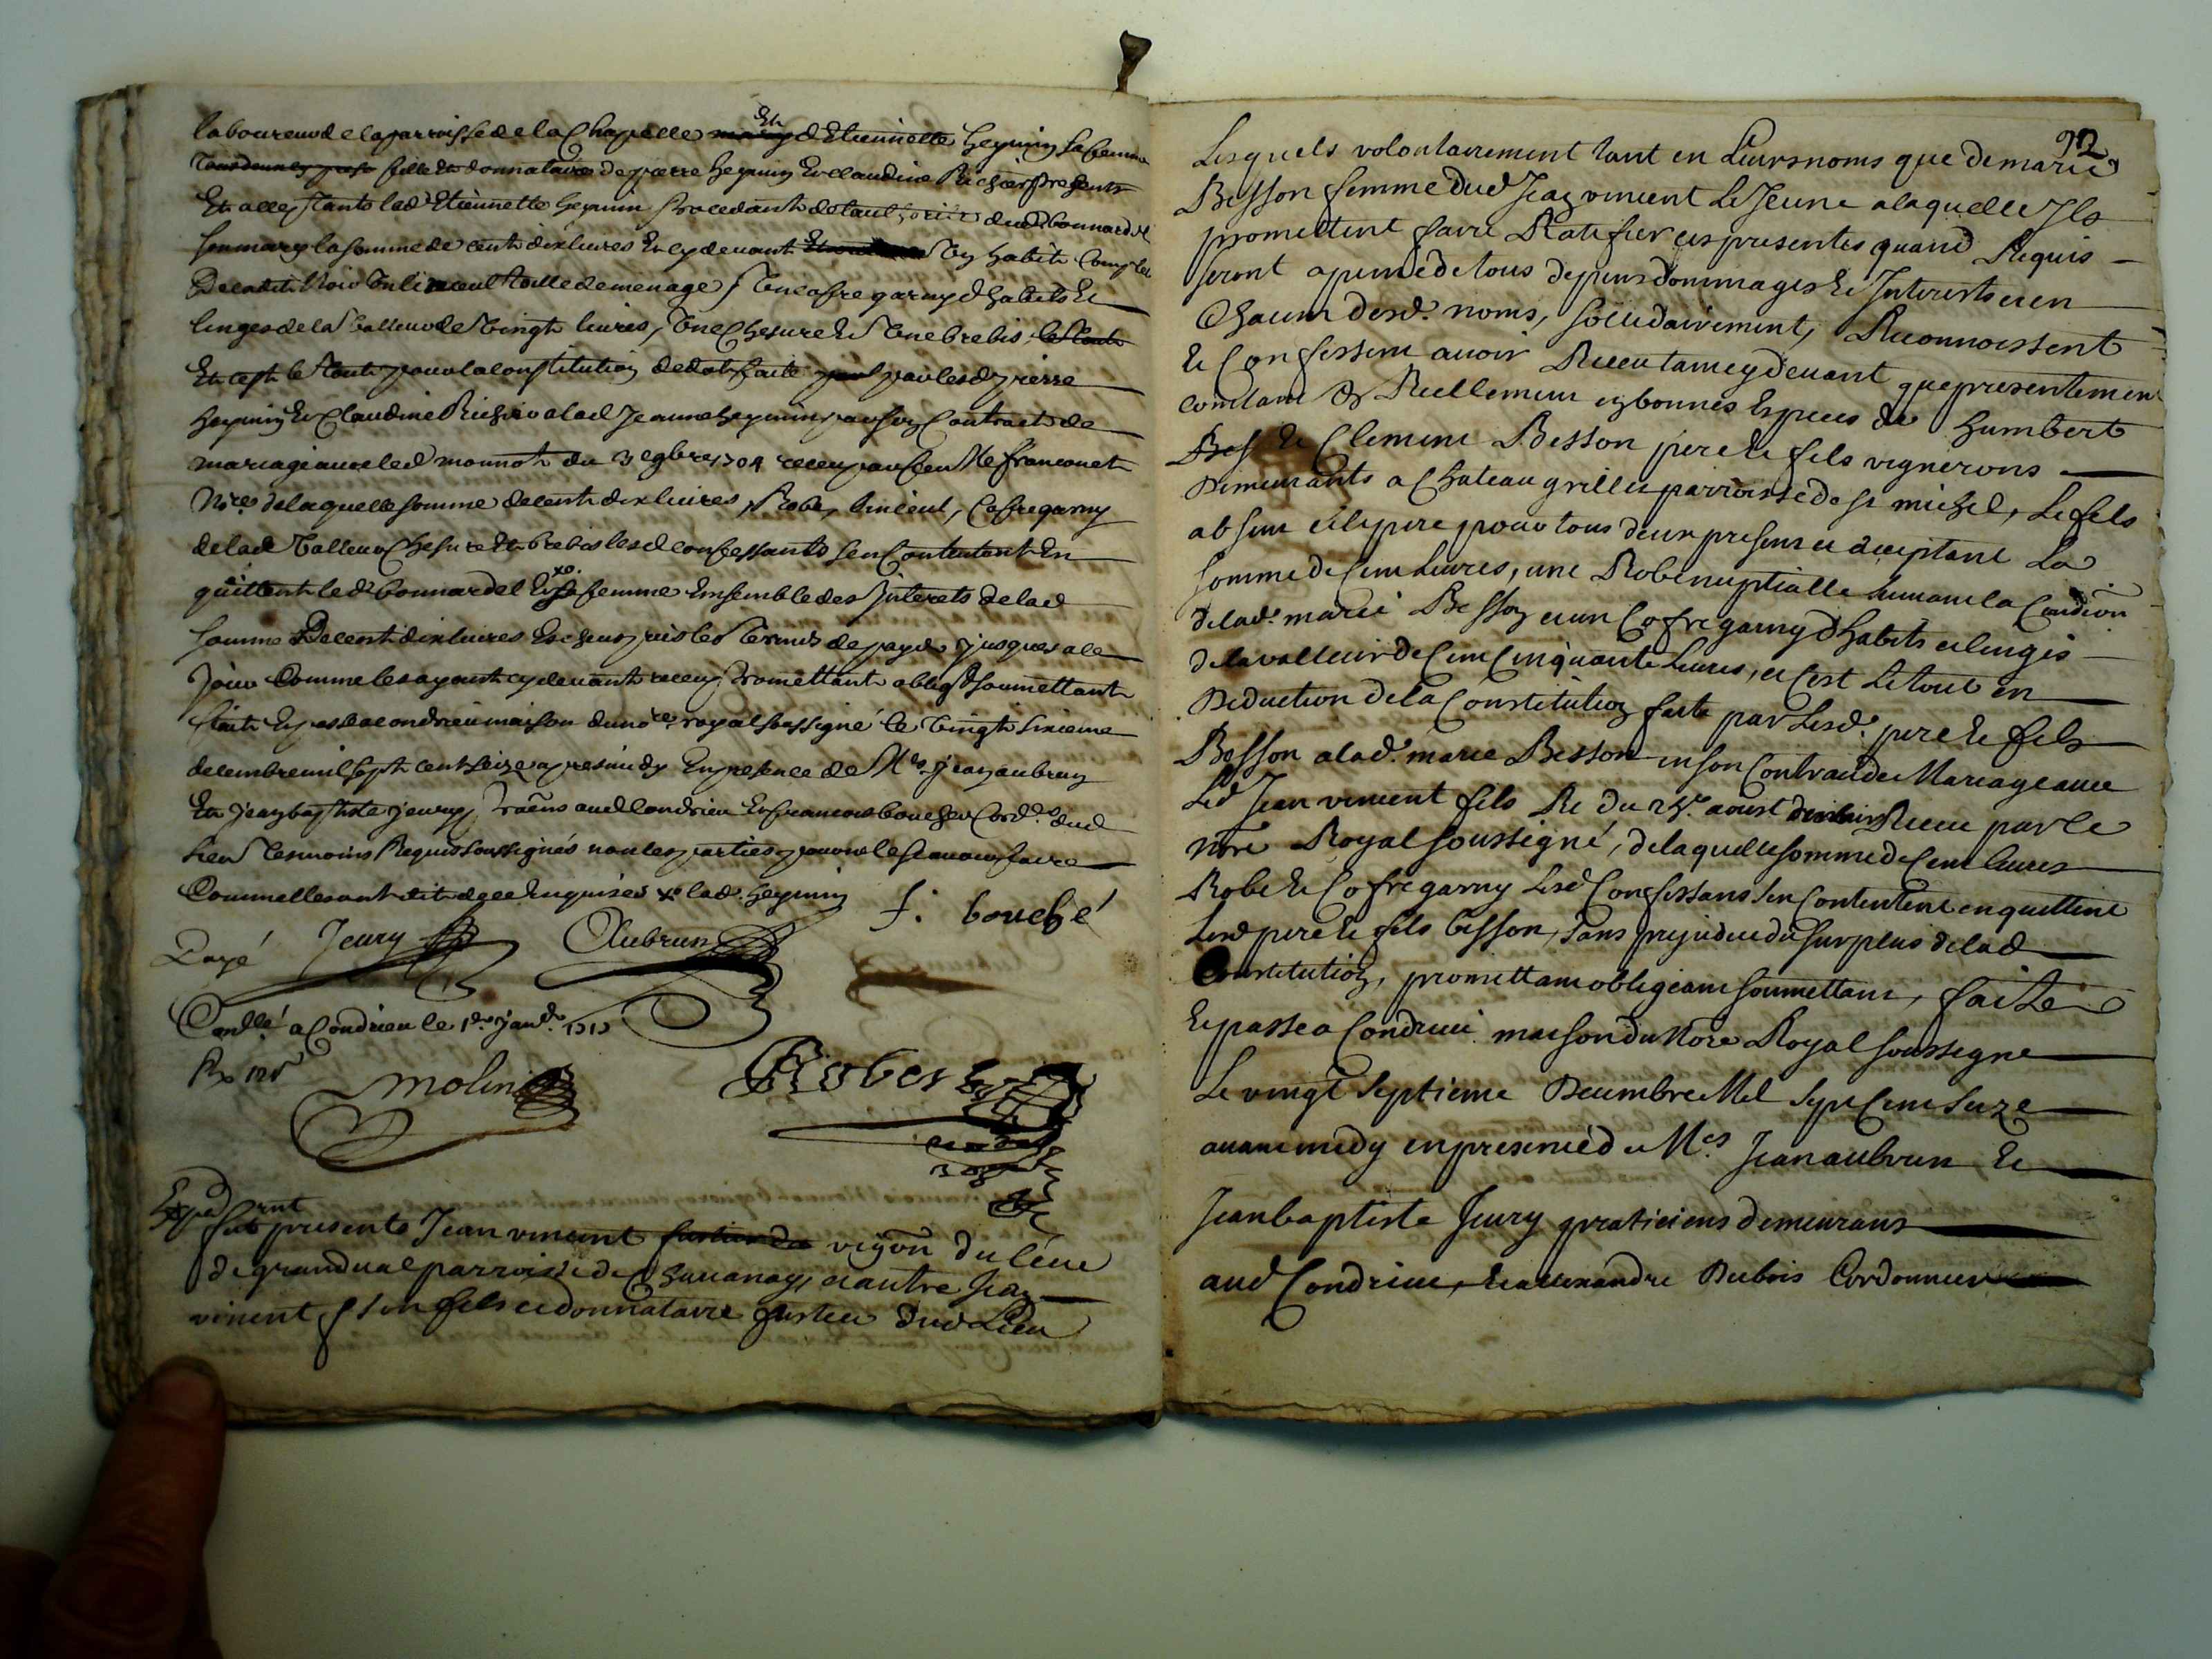 laboureur de la parroisse de la Chapelle Et d Etiennette heynin sa femme
fille Et donnataire de pierre heynin Et claudine Richier presents
Et acceptants lad Etiennette heynin procedant de l authorite dud bonnardel
son mary la somme de cent dix livres Et cy devant un habit complet
De cadit Noir un linceul toille de menage, Un cofre garny d habits Et
linges de la valleur de vingt livres, Une Chevre Et Une brebis
Et c est le tout pour la constitution de dot faite par lesd pierre
heynin Et Claudine Richier a lad Jeanne heynin par son Contract de
mariage avec led monnot du 3 9bre 1704 receu par feu Me franconet
No.re de laquelle somme de cent dix livres, Robe, linceul, Cofre garny
de lad valleur Chevre Et brebis lesd confessants s en Contentent En
quittent led bonnardel Et sa femme Ensemble des Interets de lad
somme De cent dix livres Escheus puis les termes de paye jusques a ce
jour Comme les ayant cy devant receu, Promettant oblig.t soumettant
fait Et passé a condrieu maison du no.re royal soussigné le vingt sixieme
decembre mil sept cent seize apres midy En presence de M.es Jean aubrun
Et Jean baptiste jeury, Praticiens aud condrieu Et francois boucher Cord.er dud
Lieu tesmoins Requis soussignés non les parties pour ne le scavoir faire
Comme elles ont dit de ce Enquises x lad. heynin
f. bouché
Payé Jeury Aubrun
Conllé a Condrieu le 1.er janv.r 1717
Rx 12 s
Molin
Robert
Exped
furent presents Jean vincent vigon du lieu
de grandval parroisse de Chavanay, et autre Jean
vincent son fils et donnataire fustier dud Lieu
92
Lesquels volontairement tant en Leurs noms que de marie
Besson femme dud Jean vincent Le Jeune a laquelle Ils
promettent faire Ratifier ces presentes quand Requis
seront a peine de tous depens dommages Et Interests et en
Chacun desd. noms, solidairement, Reconnoissent
Et Confessent avoir Receu tant cy devant que presentement
comtant Et Reellement en bonnes Especes de humbert
Bes Et Clement Besson pere Et fils vignerons
Demeurants a Chateau grillet parroisse de st michel, Le fils
absent et le pere pour tous deux present et acceptant La
somme de Cent Livres, une Robe nuptialle suivant la Condiõn
de lad. marie Besson et un Cofre garny d habits et linges
de la valleur de Cent Cinquante Livres, et C est Le tout en
Deduction de la Constitution faite par Lesd. pere Et fils
Besson a lad. marie Besson en son Contract de Mariage avec
Led Jean vincent fils Re du 25.e aoust dernier Receu par le
No.re Royal soussigné, de laquelle somme de Cent livres
Robe Et Cofre garny Lesd Confessans s en Contentent en quittent
Lesd pere Et fils besson, sans prejudice du surplus de lad
Constitution, promettant obligeant soumettant, faite
Et passé a Condrieu maison du No.re Royal soussigne
Le vingt Septieme Decembre Mil Sept Cent Seize
avant midy en presence de M.es Jean aubrun Et
Jean baptiste Jeury praticiens demeurans
aud Condrieu, Et allexandre Dubois Cordonnier